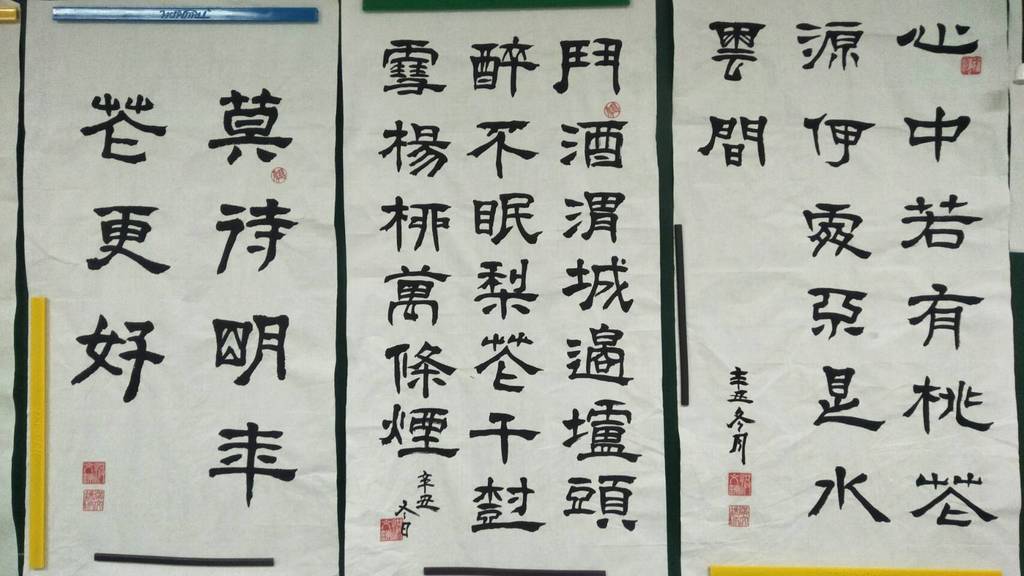 心中若有桃花
源伊處亞是水
雲間
辛丑冬月
鬥酒渭城邊壚頭
醉不眠梨花千樹
雪楊柳萬條煙
辛丑
冬日
莫待明年
花更好